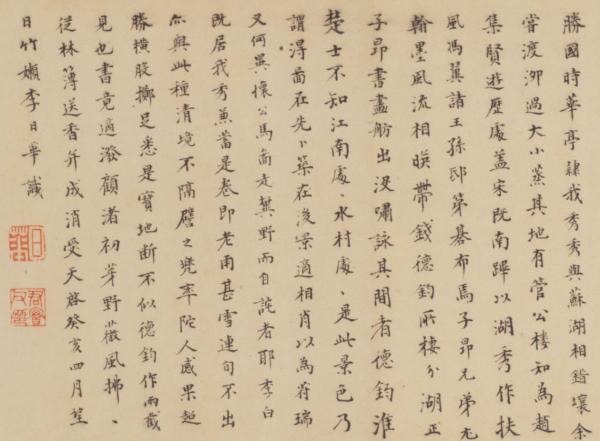 勝國時華亭隸我秀秀與蘇湖相錯壤余
嘗渡泖過大小蒸其地有管公樓知為趙
集賢遊歷處蓋宋既南蹕以湖秀作扶
風馮翼諸王孫邸第棊布馬子昂兄弟尤
翰墨風流相暎帶錢德鈞所棲分湖正
子昂書畫舫出沒嘯詠其間者德鈞淮
楚士不知江南處〻水村處〻是此景色乃
謂得畵在先卜築在後景適相肖以為符瑞
又何異懷公馬畵走冀野而自詫者耶李白
既居我秀兼蓄是卷即老甚雪連旬不出
亦與此種清境不隔譬之兜率陀人感果超
勝橫股擲足悉是寶地斷不似德鈞作兩截
見也書竟適潑顧渚初芽野薇風拂〻
從林薄送香并成消受天啓癸亥四月望
日竹嬾李日華識
日華